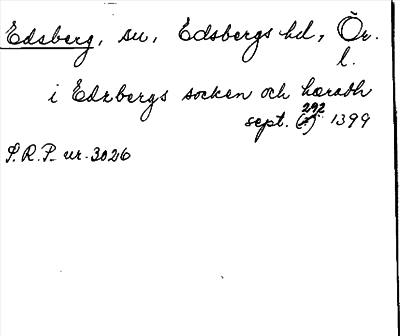 Edsberg, sn, Edsbergs hd, Ör.
l.
i Edzbergs socken och hæradh
sept. 29? 1399
S.R.P. nr. 3026